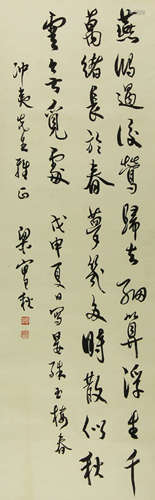 燕鴻過後鶯歸去細算浮生千
萬緒長於春夢幾多時散似秋
雲無覓處 戊申夏日寫晏殊玉樓春
沖夷先生雅正 梁寒操